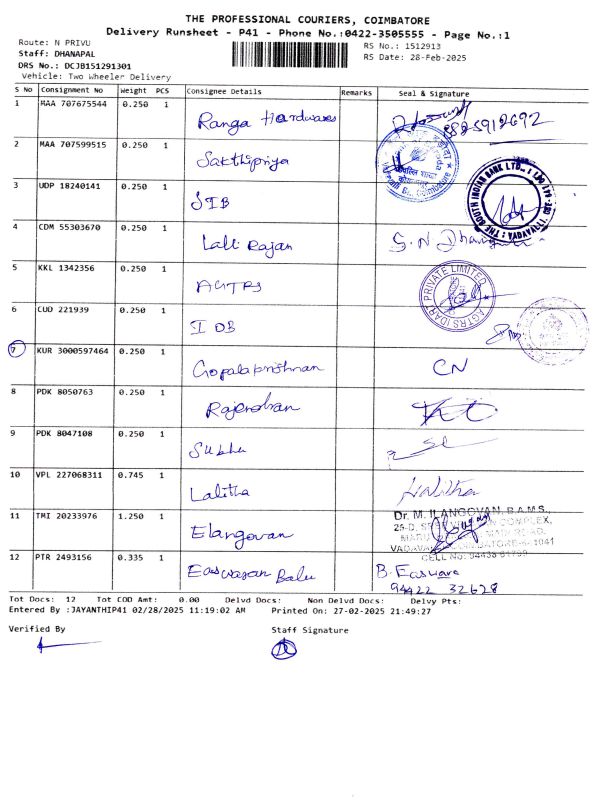 THE PROFESSIONAL COURIERS, COIMBATORE
Delivery Runsheet - P41 - Phone No.:0422-3505555 - Page No.:1
Route: N PRIVU
RS No.: 1512913
Staff: DHANAPAL
RS Date: 28-Feb-2025
DRS No.: DCJB151291301
Vehicle: Two Wheeler Delivery
S No Consignment No Weight PCS Consignee Details Remarks Seal & Signature
1 MAA 707675544 0.250 1 Ranga Hardwares
2 MAA 707599515 0.250 1 Sakthipriya
3 UDP 18240141 0.250 1 SIB
THE SOUTH INDIAN BANK LTD.,
4 CDM 55303670 0.250 1 Lali Rajan S.N
5 KKL 1342356 0.250 1 AGTRS
AGTRS (DARI) PRIVATE LIMITED
6 CUD 221939 0.250 1 IOB
7 KUR 3000597464 0.250 1 Gopalakrishnan CN
8 PDK 8050763 0.250 1 Rajendran
9 PDK 8047108 0.250 1 Subhu
10 VPL 227068311 0.745 1 Lalitha Lalitha
11 TMI 20233976 1.250 1 Elangovan
Dr. M. ILANGOVAN, B.A.M.S.,
COMPLEX,
12 PTR 2493156 0.335 1 Easwaran Balu B. Easwara
94422 32628
Tot Docs: 12 Tot COD Amt: 0.00 Delvd Docs: Non Delvd Docs: Delvy Pts:
Entered By :JAYANTHIP41 02/28/2025 11:19:02 AM Printed On: 27-02-2025 21:49:27
Verified By Staff Signature